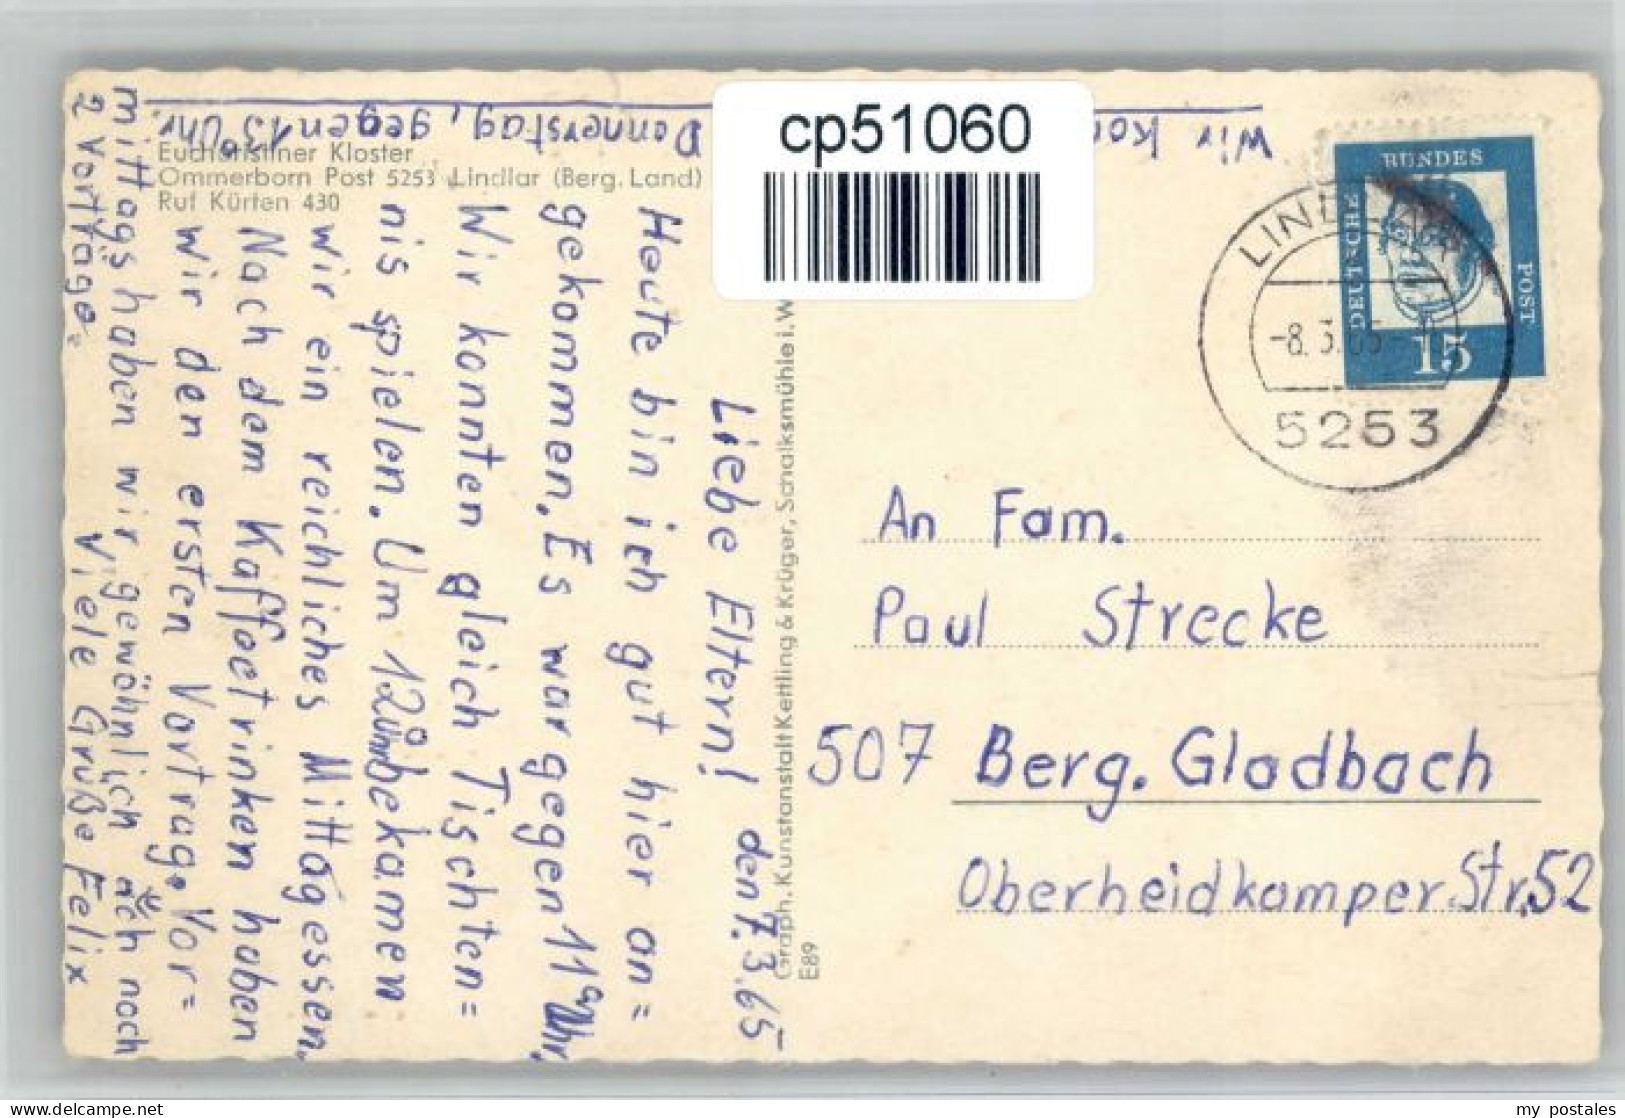 cp51060
Wir
Donnerstag, gegen 13 Uhr.
Eucharistiner Kloster
Ommerborn Post 5253 Lindlar (Berg. Land)
Ruf Kürten 430
den 7.3.65
Liebe Eltern!
Heute bin ich gut hier an=
gekommen. Es war gegen 11 Uhr.
Wir konnten gleich Tischten=
nis spielen. Um 12 Uhr bekamen
wir ein reichliches Mittagessen.
Nach dem Kaffeetrinken haben
wir den ersten Vortrag. Vor=
mittags haben wir gewöhnlich noch
2 Vorträge.
Viele Grüße Felix
Graph. Kunstanstalt Kettling & Krüger, Schalksmühle i. W
E89
BUNDES
POST
DEUTSCHE
15
LINDLAR
-8.3.65
5253
An Fam.
Paul Strecke
507 Berg. Gladbach
Oberheidkamper Str. 52
my postales